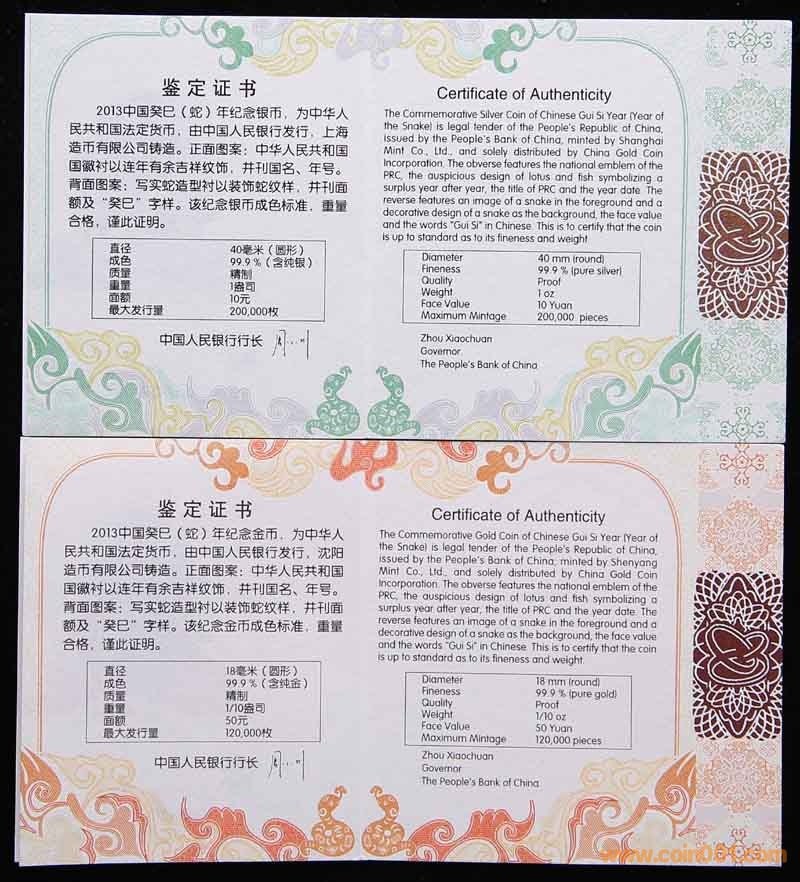 鉴定证书
2013中国癸巳（蛇）年纪念银币，为中华人
民共和国法定货币，由中国人民银行发行，上海
造币有限公司铸造。正面图案：中华人民共和国
国徽衬以连年有余吉祥纹饰，并刊国名、年号。
背面图案：写实蛇造型衬以装饰蛇纹样，并刊面
额及“癸巳”字样。该纪念银币成色标准，重量
合格，谨此证明。
直径 40毫米（圆形）
成色 99.9％（含纯银）
质量 精制
重量 1盎司
面额 10元
最大发行量 200,000枚
中国人民银行行长
Certificate of Authenticity
The Commemorative Silver Coin of Chinese Gui Si Year (Year of
the Snake) is legal tender of the People's Republic of China,
issued by the People's Bank of China, minted by Shanghai
Mint Co., Ltd., and solely distributed by China Gold Coin
Incorporation. The obverse features the national emblem of the
PRC, the auspicious design of lotus and fish symbolizing a
surplus year after year, the title of PRC and the year date. The
reverse features an image of a snake in the foreground and a
decorative design of a snake as the background, the face value
and the words "Gui Si" in Chinese. This is to certify that the coin
is up to standard as to its fineness and weight
Diameter 40 mm (round)
Fineness 99.9 % (pure silver)
Quality Proof
Weight 1 oz
Face Value 10 Yuan
Maximum Mintage 200,000 pieces
Zhou Xiaochuan
Governor
The People's Bank of China
鉴定证书
2013中国癸巳（蛇）年纪念金币，为中华人
民共和国法定货币，由中国人民银行发行，沈阳
造币有限公司铸造。正面图案：中华人民共和国
国徽衬以连年有余吉祥纹饰，并刊国名、年号。
背面图案：写实蛇造型衬以装饰蛇纹样，并刊面
额及“癸巳”字样。该纪念金币成色标准，重量
合格，谨此证明。
直径 18毫米（圆形）
成色 99.9％（含纯金）
质量 精制
重量 1/10盎司
面额 50元
最大发行量 120,000枚
中国人民银行行长
Certificate of Authenticity
The Commemorative Gold Coin of Chinese Gui Si Year (Year of
the Snake) is legal tender of the People's Republic of China,
issued by the People's Bank of China, minted by Shenyang
Mint Co., Ltd., and solely distributed by China Gold Coin
Incorporation. The obverse features the national emblem of the
PRC, the auspicious design of lotus and fish symbolizing a
surplus year after year, the title of PRC and the year date. The
reverse features an image of a snake in the foreground and a
decorative design of a snake as the background, the face value
and the words "Gui Si" in Chinese. This is to certify that the coin
is up to standard as to its fineness and weight.
Diameter 18 mm (round)
Fineness 99.9 % (pure gold)
Quality Proof
Weight 1/10 oz
Face Value 50 Yuan
Maximum Mintage 120,000 pieces
Zhou Xiaochuan
Governor
The People's Bank of China
www.coin001.com